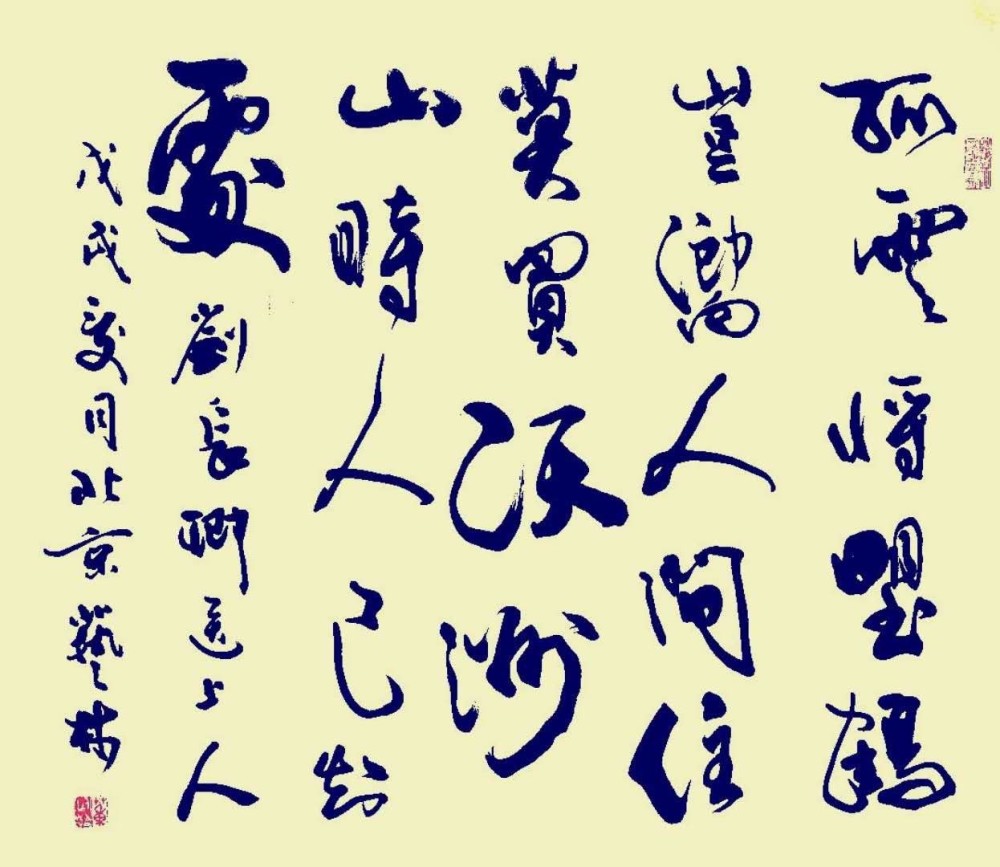 孤雲將野鶴
豈嚮人間住
莫買沃洲
山時人已知
處劉長卿送上人
戊戌夏月北京藝林